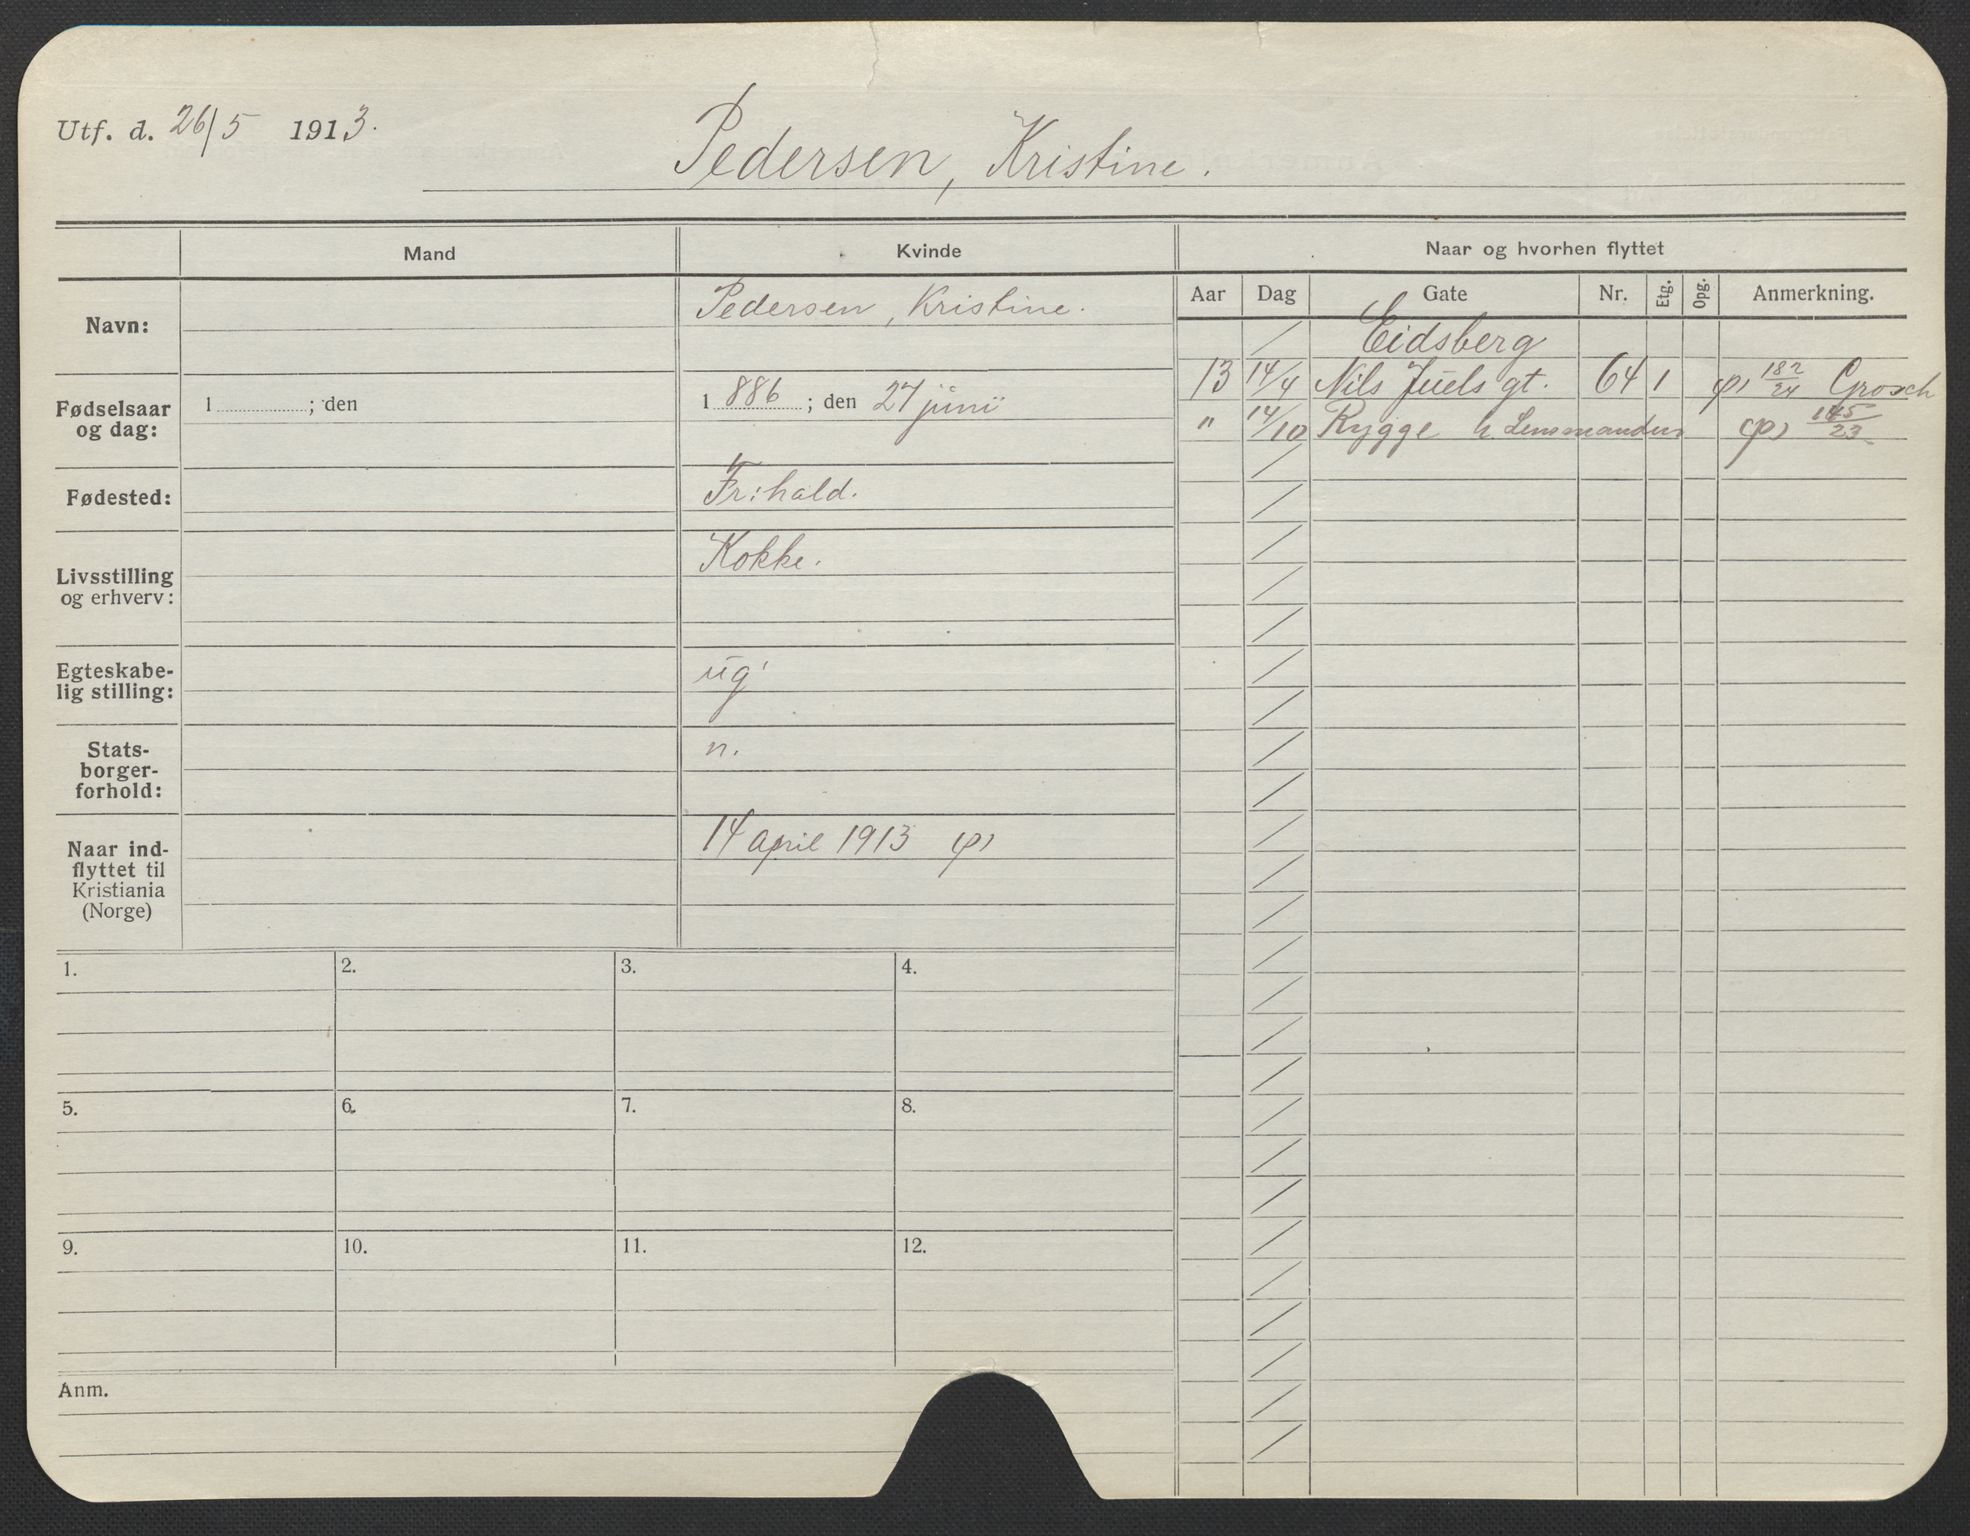 Utf. d. 26/5 1913.
Pedersen, Kristine.
Mand Kvinde Naar og hvorhen flyttet
Aar Dag Gate Nr. Etg. Opg. Anmerkning.
Navn: Pedersen, Kristine.
Fødselsaar og dag: 1 ; den 1886 ; den 27 juni
Fødested: Fr:hald.
Livsstilling og erhverv: Kokke.
Egteskabe-
lig stilling: ug
Stats-
borger-
forhold: n.
Naar ind-
flyttet til
Kristiania
(Norge) 14 april 1913
Eidsberg
13 14/4 Nils Juels gt. 64 1 182/24 Grosch
" 14/10 Rygge h. Lensmanden 145/23
1. 2. 3. 4.
5. 6. 7. 8.
9. 10. 11. 12.
Anm.